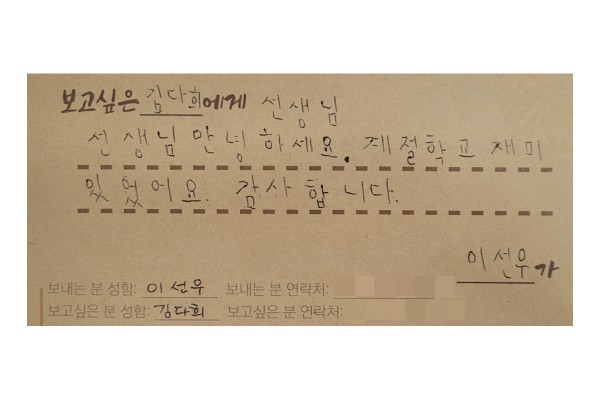 보고싶은 김다희에게 선생님
선생님 안녕하세요. 계절학교 재미
있었어요. 감사합니다.
이선우가
보내는 분 성함: 이선우 보내는 분 연락처:
보고싶은 분 성함: 김다희 보고싶은 분 연락처: